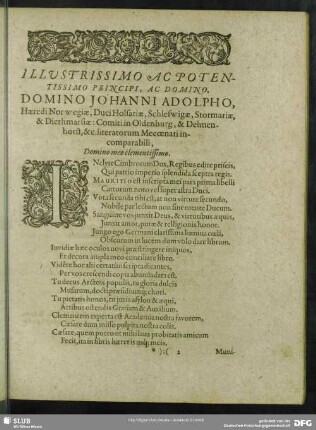 ILLVSTRISSIMO AC POTEN-
TISSIMO PRINCIPI, AC DOMINO,
DOMINO JOHANNI ADOLPHO,
Hæredi Norwegiæ, Duci Holsatiæ, Schleswigæ, Stormariæ,
& Diethmarsiæ: Comiti in Oldenburg, & Delmen-
horst, &c. literatorum Mecœnati in-
comparabili,
Domino meo clementissimo.
INclyte Cimbrorum Dux, Regibus edite priscis,
Qui patrio imperio splendida sceptra regis.
MAURITIO est inscripta mei pars prima libelli
Cattorum noto est super astra Duci.
Vota secunda tibi est, at non virtute secundo,
Nobile par lectum non sine mente Ducum.
Sanguine vos junxit Deus, & virtutibus æquis,
Junxit amor, puræ & relligionis honor.
Jungo ego Germani clarissima lumina cœli,
Obscurum in lucem dum volo dare librum.
Invidiæ hæc oculos novi præstringere iniquos,
Et decora ampla meo conciliare libro.
Vidêre hoc alii certatim scripta dicantes,
Per vos crescendi copia
Tu decus Arctois populis, tu gloria dulcis
Musarum, doctiq;
Tu pietatis honos, tu juris asylon & æqui,
Artibus ostendis Gremium & Auxilium.
Clementem experta est Academia nostra favorem,
Cæsare dum misso pulpita nostra colit.
Cæsare, quem poterunt nisi sum probitatis amicum
Fecit, ita in fibris hæret is usq; meis.
*):( 2
Muni-
SLUB
Wir führen Wissen.
gefördert von der
Deutschen Forschungsgemeinschaft
DFG